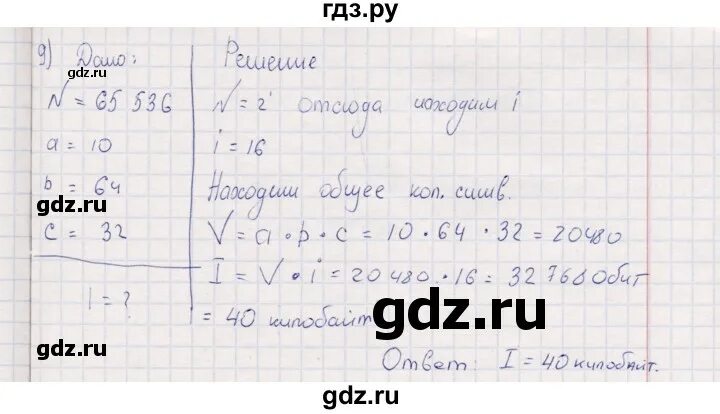 гдз.ру
9) Дано: Решение
gdz.ru gdz.ru
N = 65 536 N = 2ⁱ отсюда находим i
a = 10 i = 16
b = 64 Находим общее кол. симв.
gdz.ru gdz.ru
c = 32 V = a · b · c = 10 · 64 · 32 = 20480
I = V · i = 20 480 · 16 = 327680 бит
I = ?
= 40 килобайт
gdz.ru
gdz.ru
Ответ: I = 40 килобайт.
gdz.ru